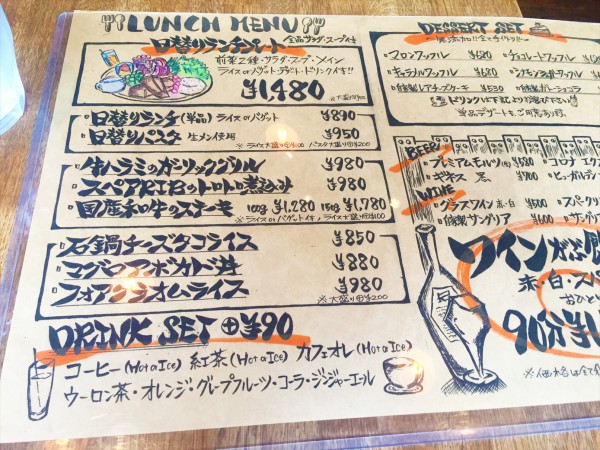 LUNCH MENU
日替りランチセット 全品サラダ・スープ付
前菜2種・サラダ・スープ・メイン
ライスorバゲット・デザート・ドリンク付!!
¥1,480
日替りランチ(単品) ライスorバゲット ¥890
日替りパスタ 生メン使用 ¥950
※ライス大盛り⊕¥100 パスタ大盛り⊕¥200
牛ハラミのガーリックグリル ¥980
スペアRIBのトロトロ煮込セット ¥980
国産和牛のステーキ 100g ¥1,280 150g ¥1,780
※ライスorバゲット付! ライス大盛り⊕¥100
石鍋チーズタコライス ¥850
マグロアボカド丼 ¥880
フォアグラオムライス ¥980
※大盛り⊕¥200
DRINK SET ⊕¥90
コーヒー(Hot or Ice) 紅茶(Hot or Ice) カフェオレ(Hot or Ice)
ウーロン茶・オレンジ・グレープフルーツ・コーラ・ジンジャーエール
DESSERT SET
〜無添加!!全て手作り!!〜
マロンワッフル ¥680 チョコレートワッフル
キャラメルワッフル ¥680 シナモンシュガーワッフル
特製レアチーズケーキ ¥530 特製ガトーショコラ
ドリンクは下記より
単品デザートもご用意あり〼
BEER
プレミアムモルツ ¥580 コロナ エクス
ギネス 黒 ¥700 ヒューガルデン
WINE
グラスワイン 赤・白 ¥500 スパークリ
特製サングリア ¥600 サングリ
ワインがぶ飲
赤・白・スパ
おひと
90分¥1,
※価格は全て税